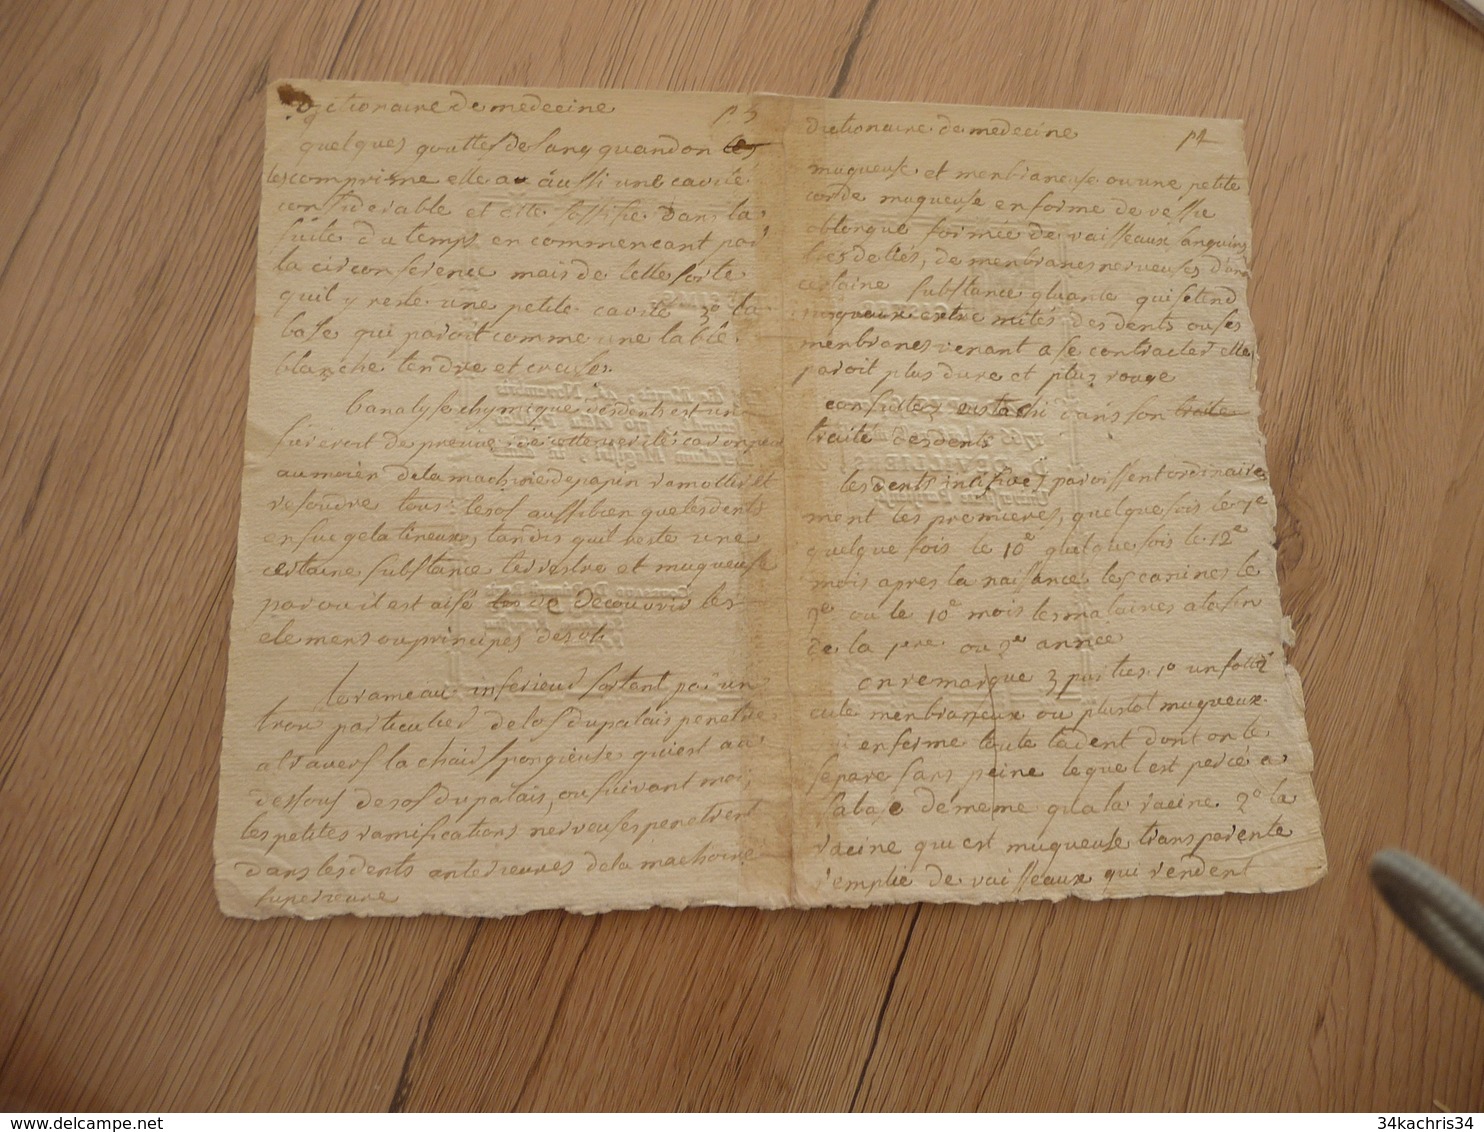 dictionaire de medecine p 3
quelques gouttes de sang quand on les
les comprisme elle a aussi une cavité
considerable et elle sossifie dans la
suite du temps en commencant par
la circonference mais de telle sorte
quil y reste une petite cavité 3º la
base qui paroit comme une table
blanche tendre et creuse.
Lanalyse chymique des dents est un
surcroit de preuve de cette verité car on peut
au moien de la machine de papin ramollir et
resoudre tous les os aussi bien que les dents
en suc gelatineux, tandis quil reste une
certaine substance terrestre et muqueuse
par ou il est aisé de decouvrir les
elemens ou principes des os.
le rameau inferieur sortent par un
trou particulier de los du palais penetre
a travers la chair spongieuse qui est au
dessous de los du palais, ou suivant moi,
les petites ramifications nerveuses penetrent
dans les dents anterieures de la machoire
superieure
dictionaire de medecine p 2
muqueuse et menbraneuse ou une petite
corde muqueuse en forme de vessie
oblongue formée de vaisseaux sanguins
tres deliés, de menbranes nerveuses d'une
certaine substance gluante qui setend
jusquaux extre mités des dents ou ses
menbranes venant a se contracter elle
paroit plus dure et plus rouge
consultez eustachi dans son traite
traité des dents
les dents incisives paroissent ordinaire
ment les premieres, quelque fois le 7e
quelque fois le 10e quelque fois le 12e
mois apres la naissance les canines le
9e ou le 10e mois les molaires a la fin
de la 1ere ou 2e année
on remarque 3 parties 1º un folli
cule menbraneux ou plustot muqueux
qui enferme toute la dent dont on le
separe sans peine lequel est percé a
la base de meme qua la racine 2º la
racine qui est muqueuse transparente
remplie de vaisseaux qui rendent
34kachris34